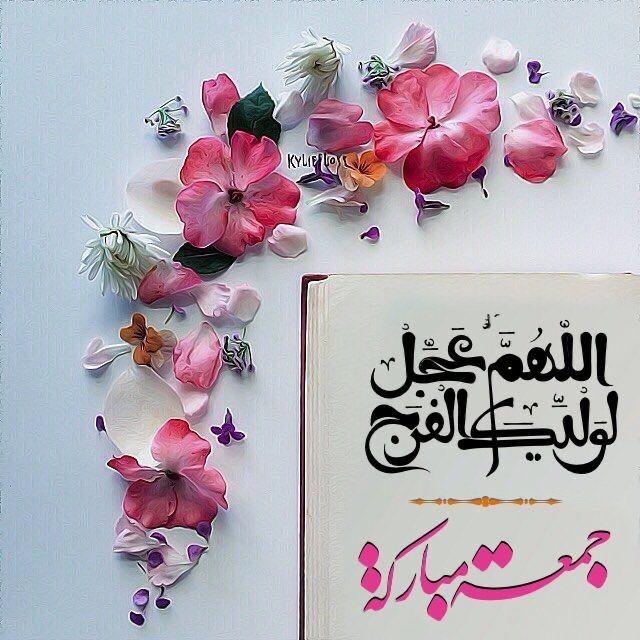 KYLIE ROSE
اللّهُمَّ عَجِّلْ
لِوَلِيِّكَ الْفَرَج
جمعة مباركة